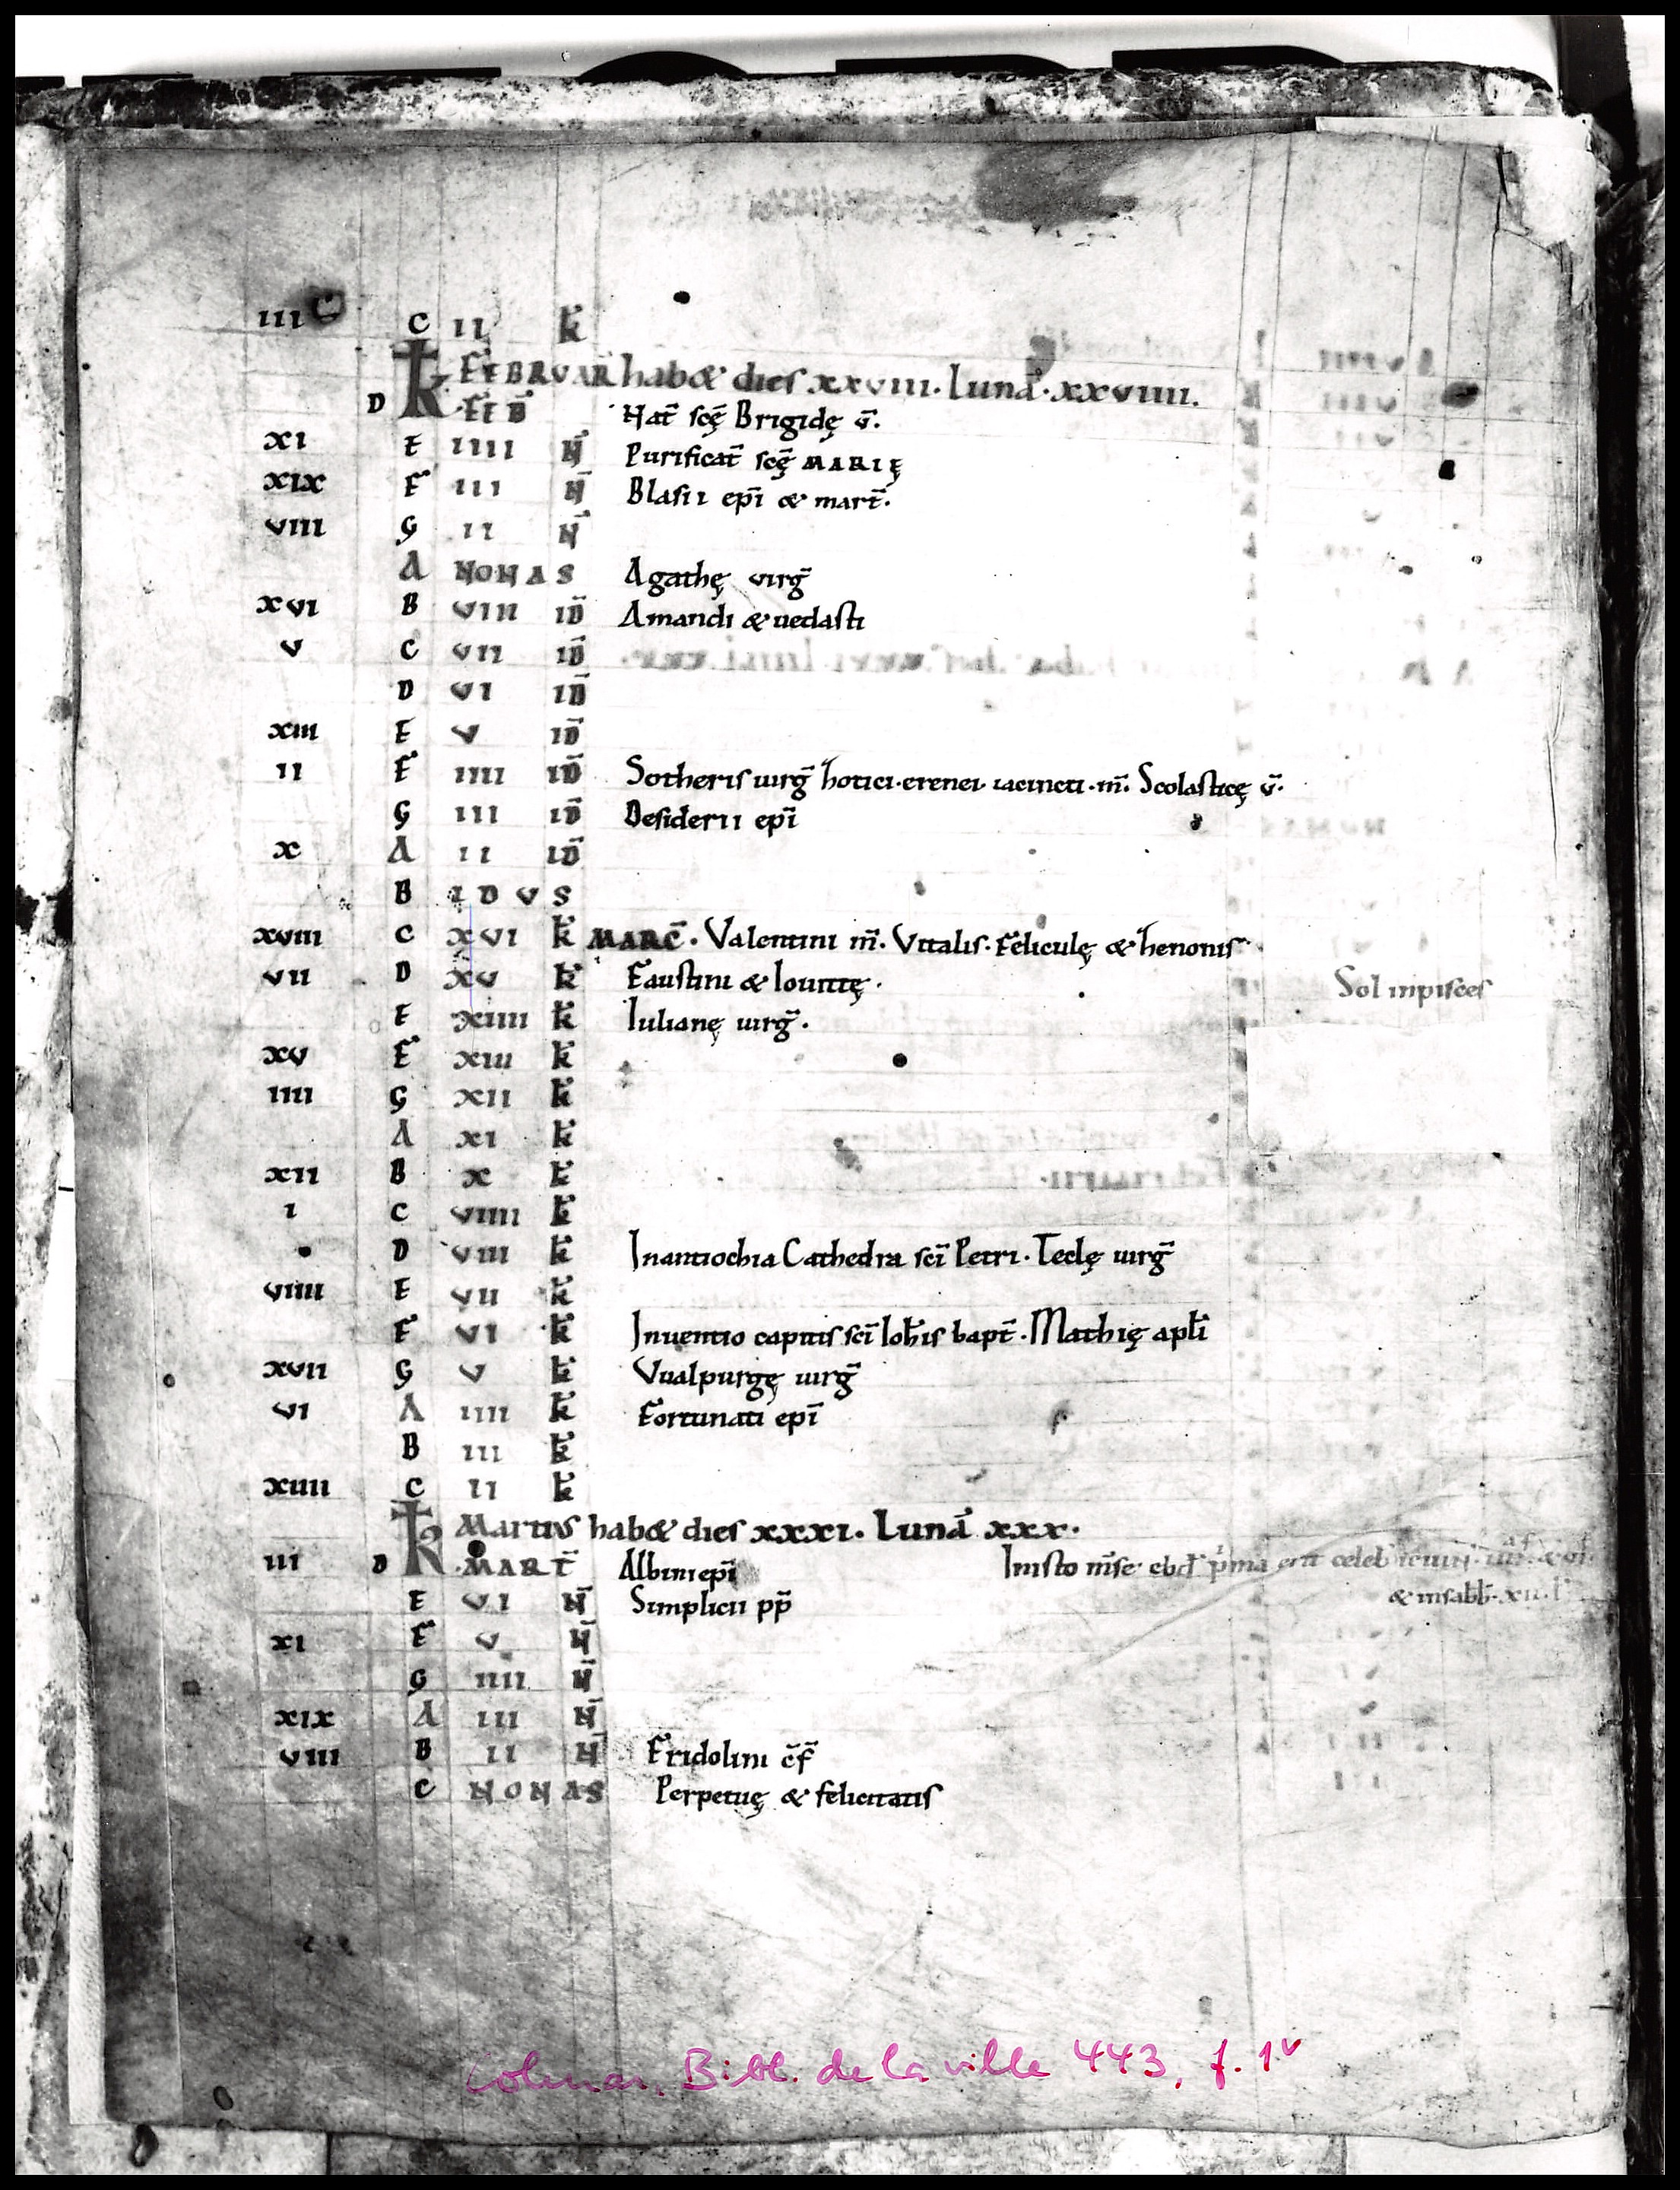 III C II k̄
FEBRUAR̄ habet dies xxviii. Luna. xxviiii.
D k FEB̄ Nat̄ scę̄ Brigidę v̄.
xi E iiii N̄ Purificat̄ scę̄ MARIĘ
xix F iii N̄ Blasii ep̄i & mart̄.
viii G ii N̄
A NONAS Agathę virḡ
xvi B viii ID̄ Amandi & uedasti
v C vii ID̄
D vi ID̄
xiii E v ID̄
ii F iiii ID̄ Sotheris uirḡ hotici. erenei. iacincti. m̄. Scolasticę v̄.
G iii ID̄ Desiderii ep̄i
x A ii ID̄
B IDVS
xviii C xvi k̄ MARC̄. Valentini m̄. Vitalis. Feliculę & henonis
vii D xv k̄ Faustini & Iouittę. Sol inpisces
E xiiii k̄ Iulianę uirḡ.
xv F xiii k̄
iiii G xii k̄
A xi k̄
xii B x k̄
i C viiii k̄
D viii k̄ Inantiochia Cathedra sc̄i Petri. Teclę uirḡ
viiii E vii k̄
F vi k̄ Inuentio capitis sc̄i Ioh̄is bapt̄. Mathię apl̄i
xvii G v k̄ Vualpurgę uirḡ
vi A iiii k̄ Fortunati ep̄i
B iii k̄
xiiii C ii k̄
Martius habet dies xxxi. Lunā xxx.
iii D k MART̄ Albini ep̄i Inisto m̄se ebd̄ p̄ma erit celeb
E vi N̄ Simplicii pp̄ & insabb̄. xii. l
xi F v N̄
G iiii N̄
xix A iii N̄
viii B ii N̄ Fridolini c̄f̄
C NONAS Perpetuę & felicitatis
Colmar, Bibl. de la ville 443, f. 1v